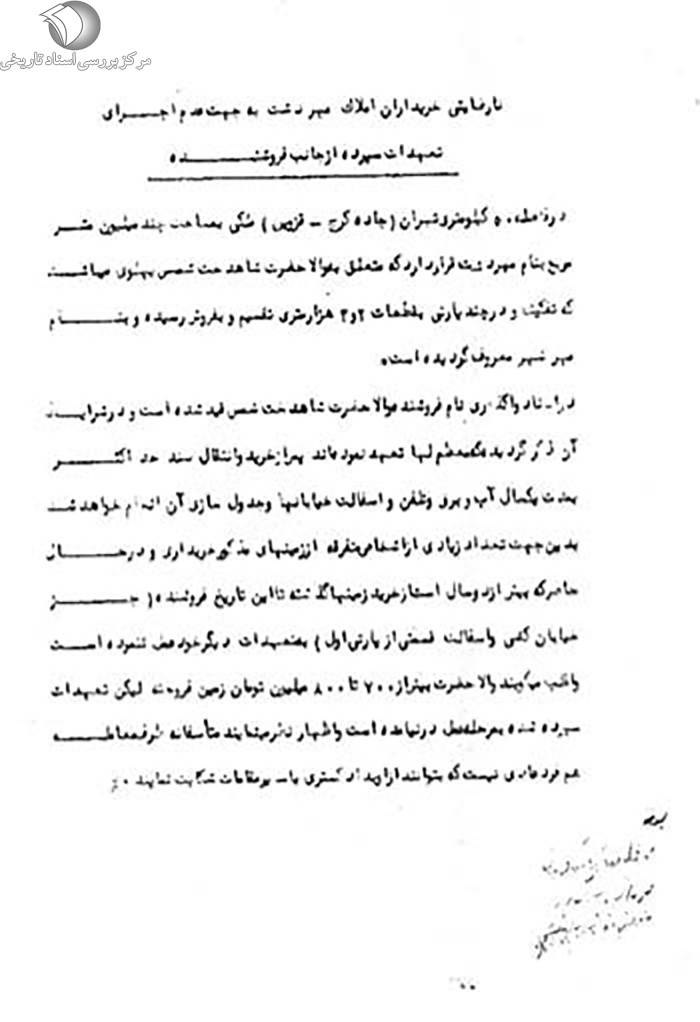 مرکز بررسی اسناد تاریخی
نارضایتی خریداران املاک مهردشت به جهت عدم اجرای
تعهدات سپرده از جانب فروشنده
در فاصله ۵۰ کیلومتری تهران (جاده کرج – قزوین) ملکی بمساحت چند میلیون متر
مربع بنام مهردشت قرار دارد که متعلق بوالاحضرت شاهدخت شمس پهلوی میباشد
که تفکیک و در چند پارتی بقطعات ۲و۳ هزارمتری تقسیم و بفروش رسیده و بنام
مهرشهر معروف گردیده است.
در اسناد واگذاری نام فروشنده والاحضرت شاهدخت شمس قید شده است و در شرایط
آن ذکر گردیده که معظم لها تعهد نموده‌اند پس از خرید وانتقال سند حداکثر
بمدت یکسال آب و برق وتلفن و اسفالت خیابانها وجدول سازی آن انجام خواهد شد
بدین جهت تعداد زیادی از اشخاص متفرقه اززمینهای مذکور خریداری و در حال
حاضر که بیش از دوسال است از خرید زمینها گذشته تا این تاریخ فروشنده (جز
خیابان کشی واسفالت قسمتی از پارتی اول) بتعهدات دیگر خود عمل ننموده است
واغلب میگویند والاحضرت بیش از ۷۰۰ تا ۸۰۰ میلیون تومان زمین فروخته لیکن تعهدات
سپرده شده بمرحله عمل در نیامده است واظهار نظر مینمایند متأسفانه طرف معامله
هم فرد عادی نیست که بتوانند از او بدادگستری یا سایر مقامات شکایت نمایند .